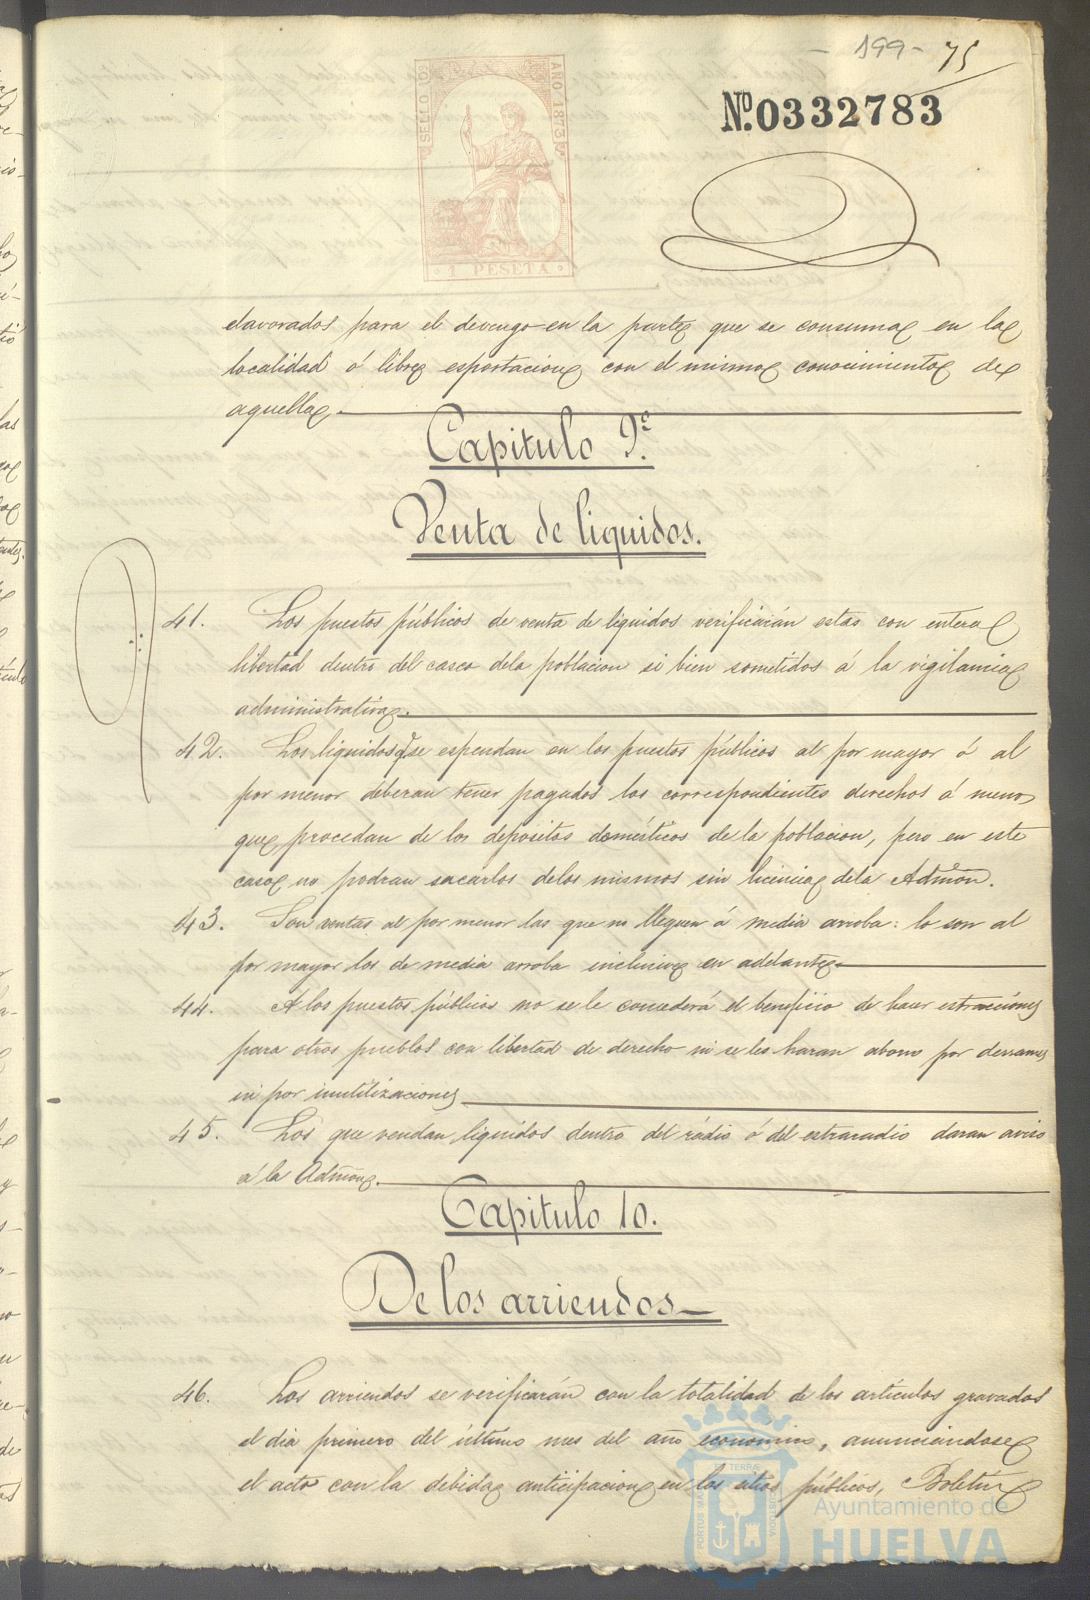 - 199 - 75
SELLO 10º
AÑO 1873
Nº. 0332783
1 PESETA
elavorados para el devengo en la parte que se consuma en la
localidad ó libre esportacion con el mismo conocimiento de
aquella.
Capitulo 9º.
Venta de liquidos.
41. Los puestos públicos de venta de liquidos verificarán estas con entera
libertad dentro del casco dela poblacion si bien sometidos á la vigilancia
administrativa.
42. Los liquidos q. se espendan en los puestos públicos al por mayor ó al
por menor deberan tener pagados los correspondientes derechos á menos
que procedan de los depositos domésticos de la poblacion, pero en este
caso no podran sacarlos delos mismos sin licencia dela Admon.
43. Son ventas al por menor las que no lleguen á media arroba: lo son al
por mayor las de media arroba inclusive en adelante.
44. A los puestos públicos no se le concederá el beneficio de hacer estracciones
para otros pueblos con libertad de derecho ni se les haran abono por derrames
ni por inutilizaciones
45. Los que vendan liquidos dentro del rádio ó del estraradio daran aviso
á la Admon.
Capitulo 10.
De los arriendos
46. Los arriendos se verificarán con la totalidad de los artículos gravados
el dia primero del último mes del año economico, anunciandose
el acto con la debida anticipacion en los sitios públicos, Boletin
Ayuntamiento de
HUELVA